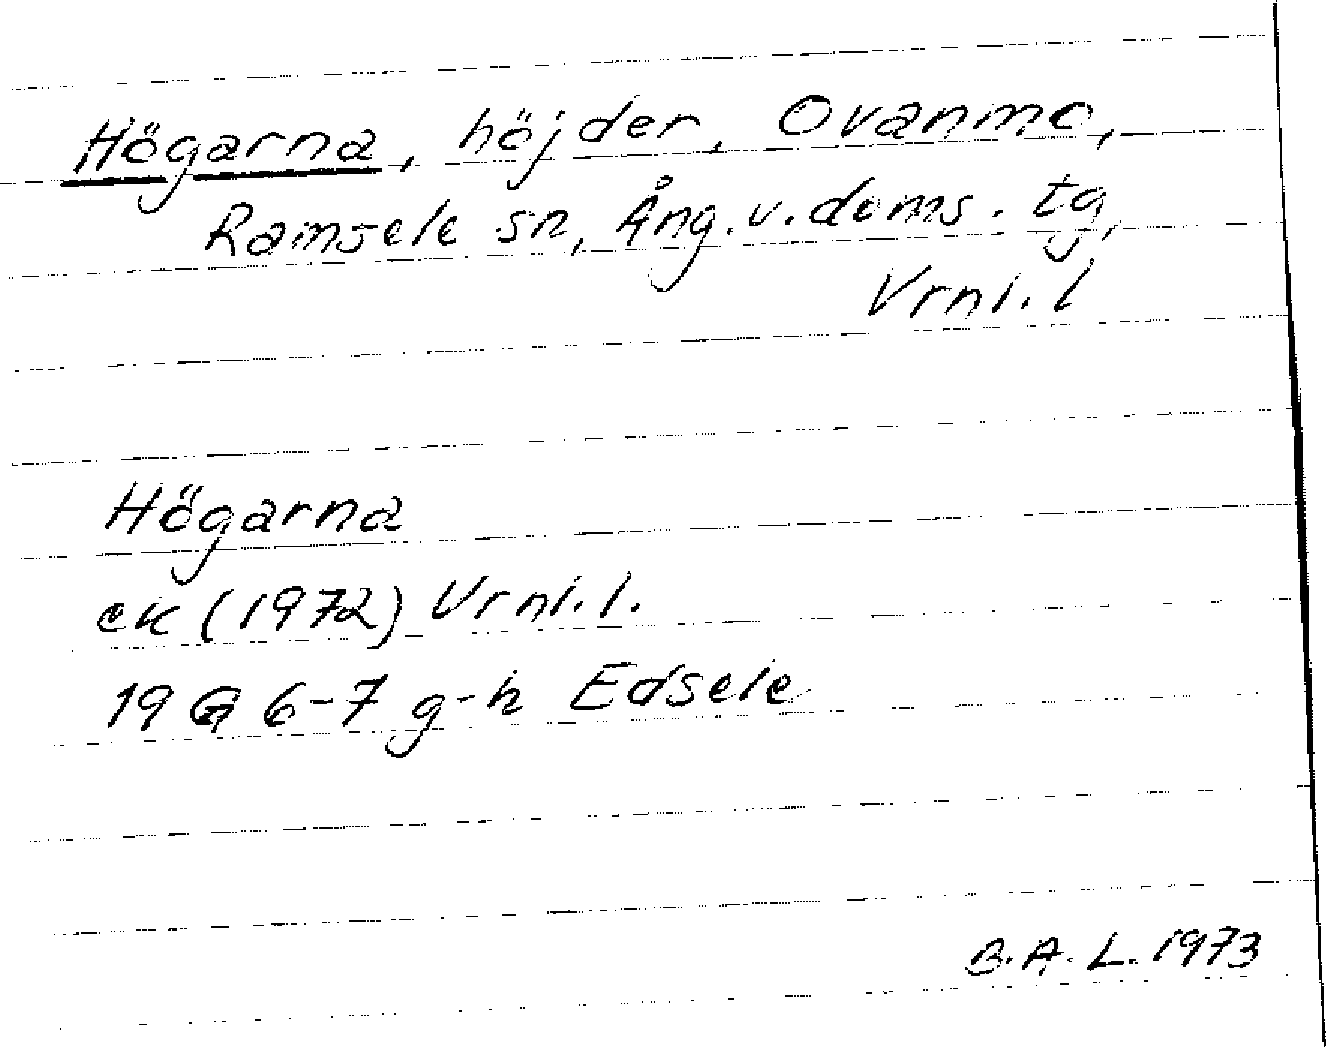 Högarna, höjder, Ovanmo,
Ramsele sn, Ång. v. doms. tg,
Vrnl. l
Högarna
ek (1972) Vrnl. l.
19 G 6-7 g-h Edsele
B. A. L. 1973